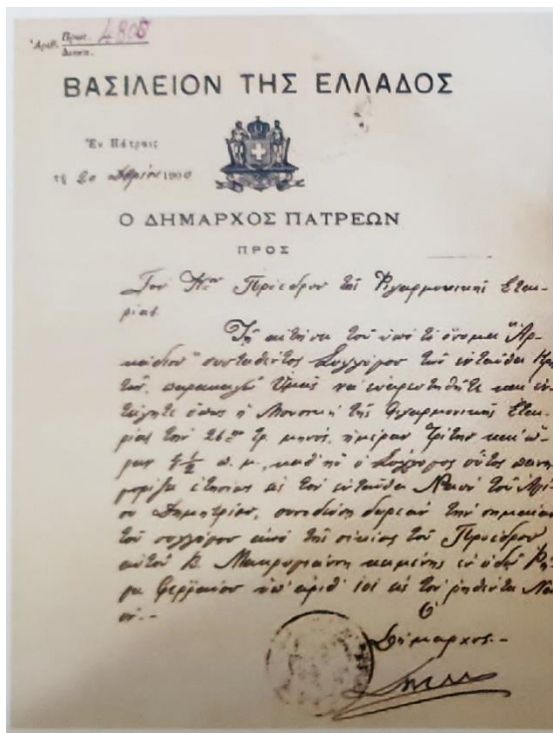 Ἀριθ. Πρωτ. 4805
Διεκπ.
ΒΑΣΙΛΕΙΟΝ ΤΗΣ ΕΛΛΑΔΟΣ
Ἐν Πάτραις
τῇ 20 1900
Ο ΔΗΜΑΡΧΟΣ ΠΑΤΡΕΩΝ
ΠΡΟΣ
Τον Κον Πρόεδρον της Φιλαρμονικής Εται-
ρίας
Τῇ αιτήσει του υπό το όνομα "Αρ-
κάδιον" συσταθέντος Συλλόγου των ενταύθα
των, παρακαλώ Υμάς να ευαρεστηθήτε και
όπως η Μουσική της Φιλαρμονικής Εται-
ρίας την 26ην τρ. μηνός, ημέραν Τρίτην και ώ-
ραν 7½ π. μ., καθ' ην ο Σύλλογος ούτος πανη-
γυρίζει ετησίως εις τον ενταύθα Ναόν του Αγί-
ου Δημητρίου, συνοδεύση δωρεάν την σημαίαν
του συλλόγου από της οικίας του Προέδρου
αυτού Β. Μακρυγιάννη κειμένης εν οδώ Ρή-
γα Φερραίου υπ' αριθ 101 εις τον ρηθέντα Να-
όν.-
Ο
Δήμαρχος.-